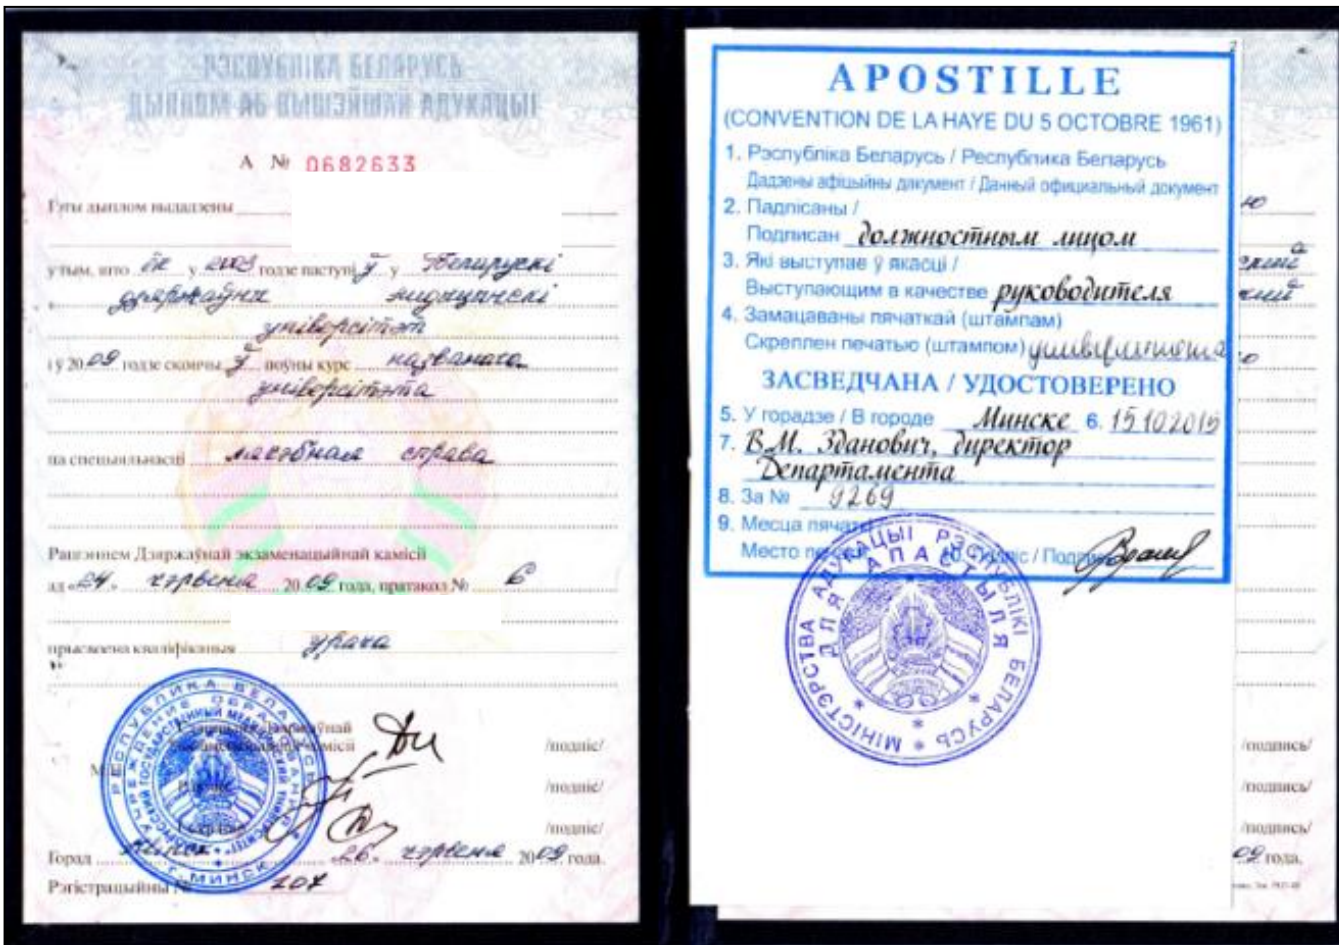 РЭСПУБЛІКА БЕЛАРУСЬ
ДЫПЛОМ АБ ВЫШЭЙШАЙ АДУКАЦЫІ
А № 0682633
Гэты дыплом выдадзены
у тым, што ён у 2003 годзе паступіў у Беларускі
дзяржаўны медыцынскі
універсітэт
і ў 2009 годзе скончыў поўны курс названага
універсітэта
па спецыяльнасці лячэбная справа
Рашэннем Дзяржаўнай экзаменацыйнай камісіі
ад «24» чэрвеня 2009 года, пратакол № 6
прысвоена кваліфікацыя урача
Дзяржаўнай
/подпіс/
/подпіс/
/подпіс/
Горад Мінск «26» чэрвеня 2009 года.
Рэгістрацыйны № 207
РЕСПУБЛИКА БЕЛАРУСЬ
УЧРЕЖДЕНИЕ ОБРАЗОВАНИЯ
БЕЛОРУССКИЙ ГОСУДАРСТВЕННЫЙ МЕДИЦИНСКИЙ УНИВЕРСИТЕТ
Г. МИНСК
APOSTILLE
(CONVENTION DE LA HAYE DU 5 OCTOBRE 1961)
1. Рэспубліка Беларусь / Республика Беларусь
Дадзены афіцыйны дакумент / Данный официальный документ
2. Падпісаны /
Подписан должностным лицом
3. Які выступае ў якасці /
Выступающим в качестве руководителя
4. Замацаваны пячаткай (штампам)
Скреплен печатью (штампом) университета
ЗАСВЕДЧАНА / УДОСТОВЕРЕНО
5. У горадзе / В городе Минске 6. 15.10.2015
7. В.М. Зданович, директор
Департамента
8. За № 9269
9. Месца пячаткі
Место печати 10. Подпіс / Подпись
МІНІСТЭРСТВА АДУКАЦЫІ РЭСПУБЛІКІ БЕЛАРУСЬ
ДЛЯ АПАСТЫЛЯ
/подпись/
/подпись/
/подпись/
09 года.